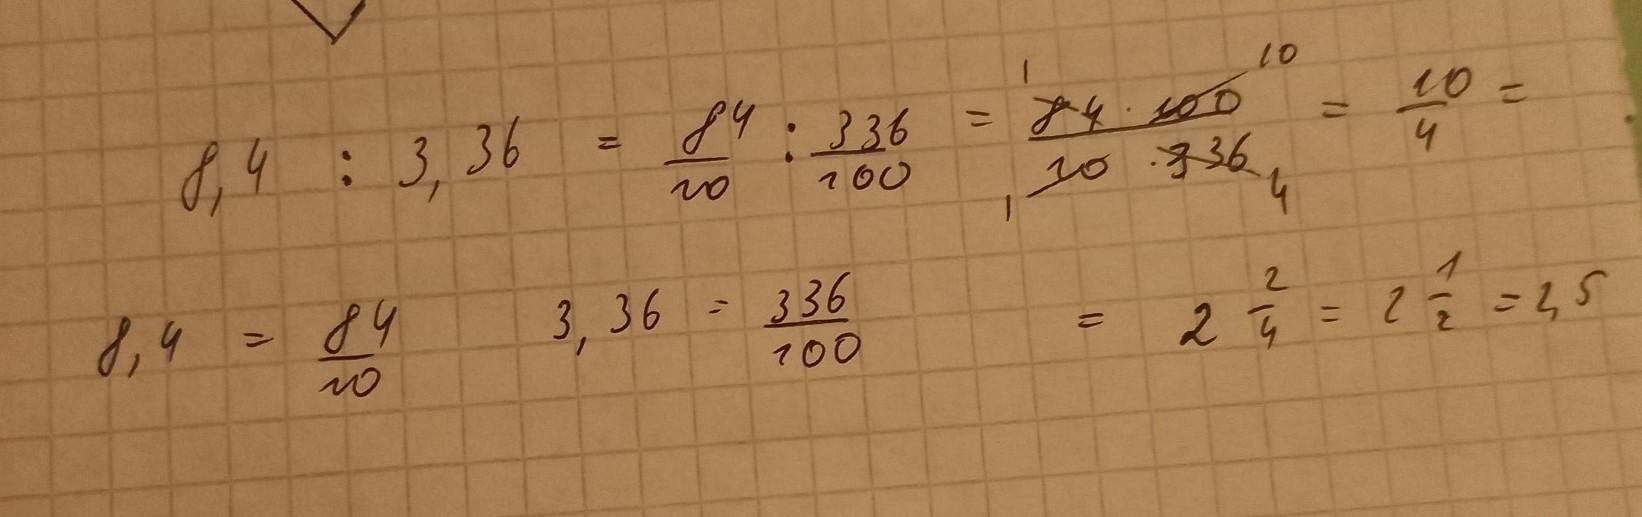 8,4 : 3,36 = 84/10 : 336/100 = 84 · 100/10 · 336 = 10/4 =
8,4 = 84/10 3,36 = 336/100 = 2 2/4 = 2 1/2 = 2,5